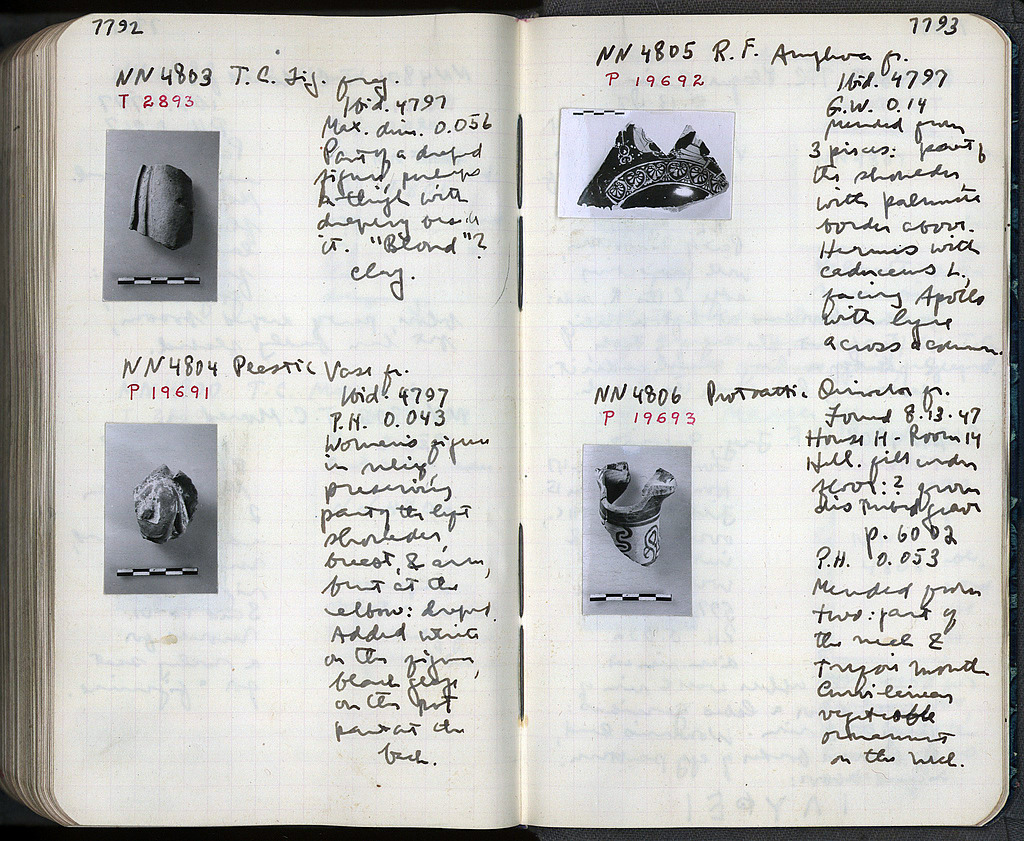 7792
NN 4803 T. C. Fig. frag.
T 2893
Ibid. 4797
Max. dim. 0.056
Part of a draped
figure, perhaps
a thigh with
drapery beside
it. "Blond"?
clay.
NN 4804 Plastic Vase fr.
P 19691
Ibid. 4797
P.H. 0.043
Woman's figure
in relief
preserving
part of the left
shoulder,
breast, & arm,
bent at the
elbow: draped.
Added white
on the figure,
black glaze
on the pot
part at the
back.
7793
NN 4805 R. F. Amphora fr.
P 19692
Ibid. 4797
G.W. 0.14
Mended from
3 pieces: part of
the shoulder
with palmette
border above.
Hermes with
caduceus L.,
facing Apollo
with lyre
across a column.
NN 4806 Protoattic Oinochoe fr.
P 19693
Found 8-13-47
House H - Room 14
Hell. fill under
floor: ? from
disturbed grave
p. 6002
P.H. 0.053
Mended from
two: part of
the neck &
trefoil mouth
Curvilinear
vegetable
ornament
on the neck.